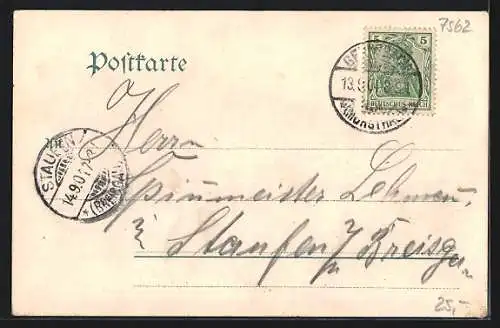 7562
Postkarte
5 5
DEUTSCHES REICH
13.9.0
STAUFEN
14.9.0
(BREISGAU)
Herrn
Spinnmeister Lehmann
Staufen / Breisgau
25,-